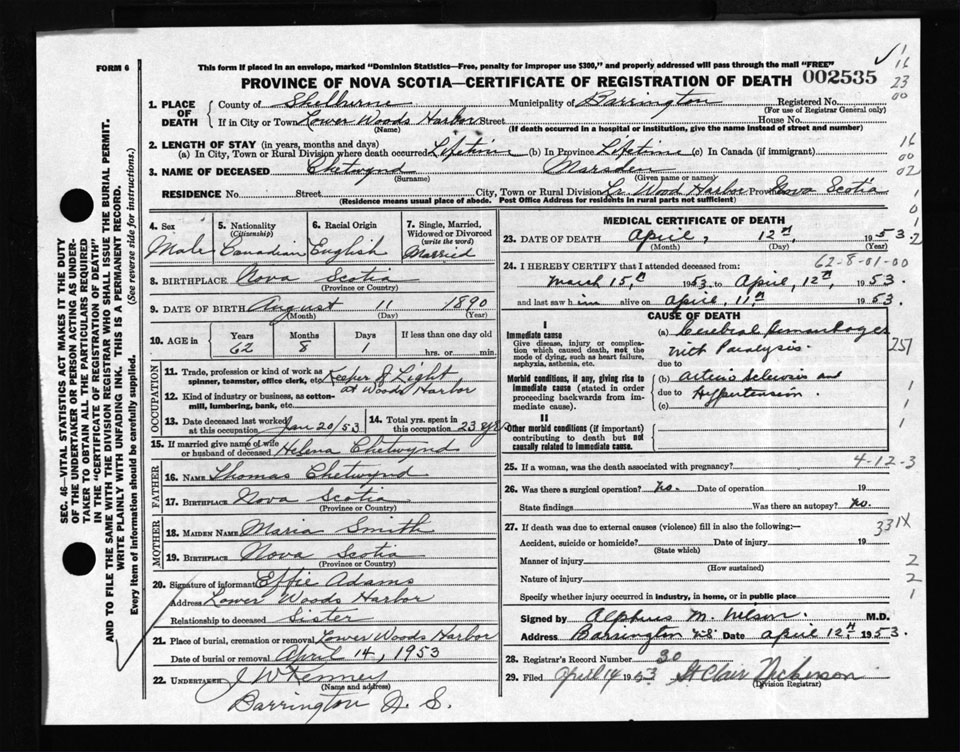 FORM 6
This form if placed in an envelope, marked "Dominion Statistics—Free, penalty for improper use $300," and properly addressed will pass through the mail "FREE"
PROVINCE OF NOVA SCOTIA—CERTIFICATE OF REGISTRATION OF DEATH 002535
1. PLACE OF DEATH
County of Shelburne Municipality of Barrington Registered No.
(For use of Registrar General only)
If in City or Town Lower Woods Harbor Street House No.
(Name) (If death occurred in a hospital or institution, give the name instead of street and number)
2. LENGTH OF STAY (in years, months and days)
(a) In City, Town or Rural Division where death occurred Lifetime (b) In Province Lifetime (c) In Canada (if immigrant)
3. NAME OF DECEASED Chetwynd Marsden
(Surname) (Given name or names)
RESIDENCE No. Street City, Town or Rural Division Lr Wood Harbor Province Nova Scotia
(Residence means usual place of abode. Post Office Address for residents in rural parts not sufficient)
SEC. 46—VITAL STATISTICS ACT MAKES IT THE DUTY
OF THE UNDERTAKER OR PERSON ACTING AS UNDER-
TAKER TO OBTAIN ALL THE PARTICULARS REQUIRED
IN THE "CERTIFICATE OF REGISTRATION OF DEATH"
AND TO FILE THE SAME WITH THE DIVISION REGISTRAR WHO SHALL ISSUE THE BURIAL PERMIT.
WRITE PLAINLY WITH UNFADING INK. THIS IS A PERMANENT RECORD.
Every item of information should be carefully supplied. (See reverse side for instructions.)
4. Sex
Male
5. Nationality
(Citizenship)
Canadian
6. Racial Origin
English
7. Single, Married, Widowed or Divorced
(write the word)
Married
8. BIRTHPLACE Nova Scotia
(Province or Country)
9. DATE OF BIRTH August 11 1890
(Month) (Day) (Year)
10. AGE in Years Months Days If less than one day old
62 8 1 hrs. or min.
OCCUPATION
11. Trade, profession or kind of work as
spinner, teamster, office clerk, etc. Keeper of Light
at Woods Harbor
12. Kind of industry or business, as cotton-
mill, lumbering, bank, etc.
13. Date deceased last worked
at this occupation Jan 20/53
14. Total yrs. spent in
this occupation 23 yrs
15. If married give name of wife
or husband of deceased Helena Chetwynd
FATHER
16. NAME Thomas Chetwynd
17. BIRTHPLACE Nova Scotia
(Province or Country)
MOTHER
18. MAIDEN NAME Maria Smith
19. BIRTHPLACE Nova Scotia
(Province or Country)
20. Signature of informant Effie Adams
Address Lower Woods Harbor
Relationship to deceased Sister
21. Place of burial, cremation or removal Lower Woods Harbor
Date of burial or removal April 14, 1953
22. UNDERTAKER J W Kenney
(Name and address)
Barrington N. S.
MEDICAL CERTIFICATE OF DEATH
23. DATE OF DEATH April, 12th, 1953
(Month) (Day) (Year)
62-8-01-00
24. I HEREBY CERTIFY that I attended deceased from:
March 15th, 1953 to April, 12th, 1953.
and last saw him alive on April, 11th 1953.
CAUSE OF DEATH
I
Immediate cause
Give disease, injury or complica-
tion which caused death, not the
mode of dying, such as heart failure,
asphyxia, asthenia, etc.
(a) Cerebral
with Paralysis
due to
Morbid conditions, if any, giving rise to
immediate cause (stated in order
proceeding backwards from im-
mediate cause).
(b) and
due to Hypertension.
(c)
II
Other morbid conditions (if important)
contributing to death but not
causally related to immediate cause.
25. If a woman, was the death associated with pregnancy? 4-12-3
26. Was there a surgical operation? No. Date of operation 19
State findings Was there an autopsy? No.
27. If death was due to external causes (violence) fill in also the following:— 331X
Accident, suicide or homicide? Date of injury 19
(State which)
Manner of injury
(How sustained)
Nature of injury
Specify whether injury occurred in industry, in home, or in public place
Signed by Alphus M. Wilson. M.D.
Address Barrington N.S. Date April 12th 1953.
28. Registrar's Record Number 30
29. Filed April 14 1953 St Clair Nickerson
(Division Registrar)
1
16
23
00
16
00
02
1
0
1
2
251
1
1
1
2
2
1